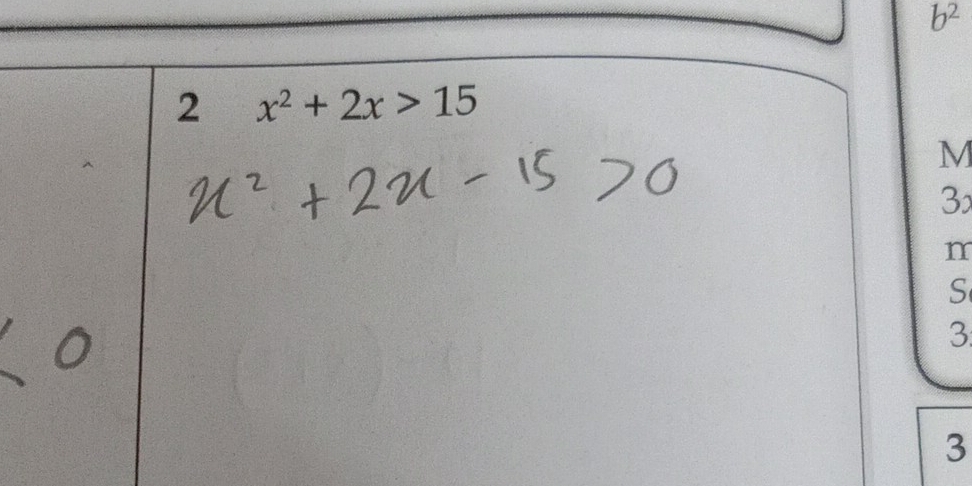 b²
2 x² + 2x > 15
x² + 2x - 15 > 0
M
3x
m
3
< 0
3